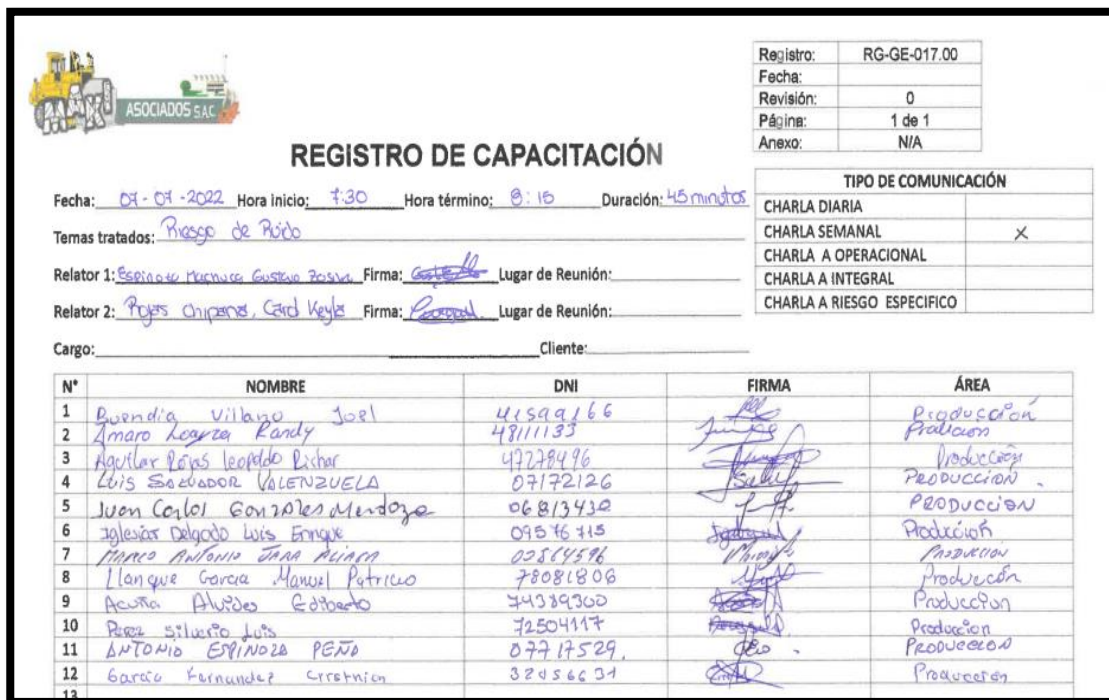 MAXI
ASOCIADOS S.A.C
Registro: RG-GE-017.00
Fecha:
Revisión: 0
Página: 1 de 1
Anexo: N/A
REGISTRO DE CAPACITACIÓN
Fecha: 07-07-2022 Hora inicio: 7:30 Hora término: 8:15 Duración: 45 minutos
Temas tratados: Riesgo de Ruido
Relator 1: Espinoza Machuca Gustavo Firma: Lugar de Reunión:
Relator 2: Rojas Chipana, Carol Keyla Firma: Lugar de Reunión:
Cargo: Cliente:
TIPO DE COMUNICACIÓN
CHARLA DIARIA
CHARLA SEMANAL X
CHARLA A OPERACIONAL
CHARLA A INTEGRAL
CHARLA A RIESGO ESPECIFICO
N° NOMBRE DNI FIRMA ÁREA
1 Buendia Villano Joel 41599166 Producción
2 Amaro Loayza Randy 48111133
3 Aguilar Rojas leopoldo Richar 47278496 Producción
4 LUIS SALVADOR VALENZUELA 07172126 PRODUCCIÓN
5 Juan Carlos Gonzales Mendoza 06813430 PRODUCCIÓN
6 Iglesias Delgado Luis Enrique 09576715 Producción
7 MARCO ANTONIO JARA ALIAGA PRODUCCION
8 Llanque Garcia Manuel Patricio 78081806 Producción
9 Acuña Alvides Edilberto 74389300 Producción
10 Perez Silverio Luis 72504117 Produccion
11 ANTONIO ESPINOZA PEÑA 07717529 PRODUCCION
12 Garcia Fernandez 32456631 Producción
13